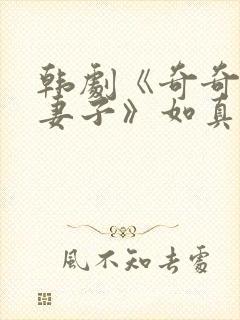 韩劇《奇奇
妻子》如真
風不知去處